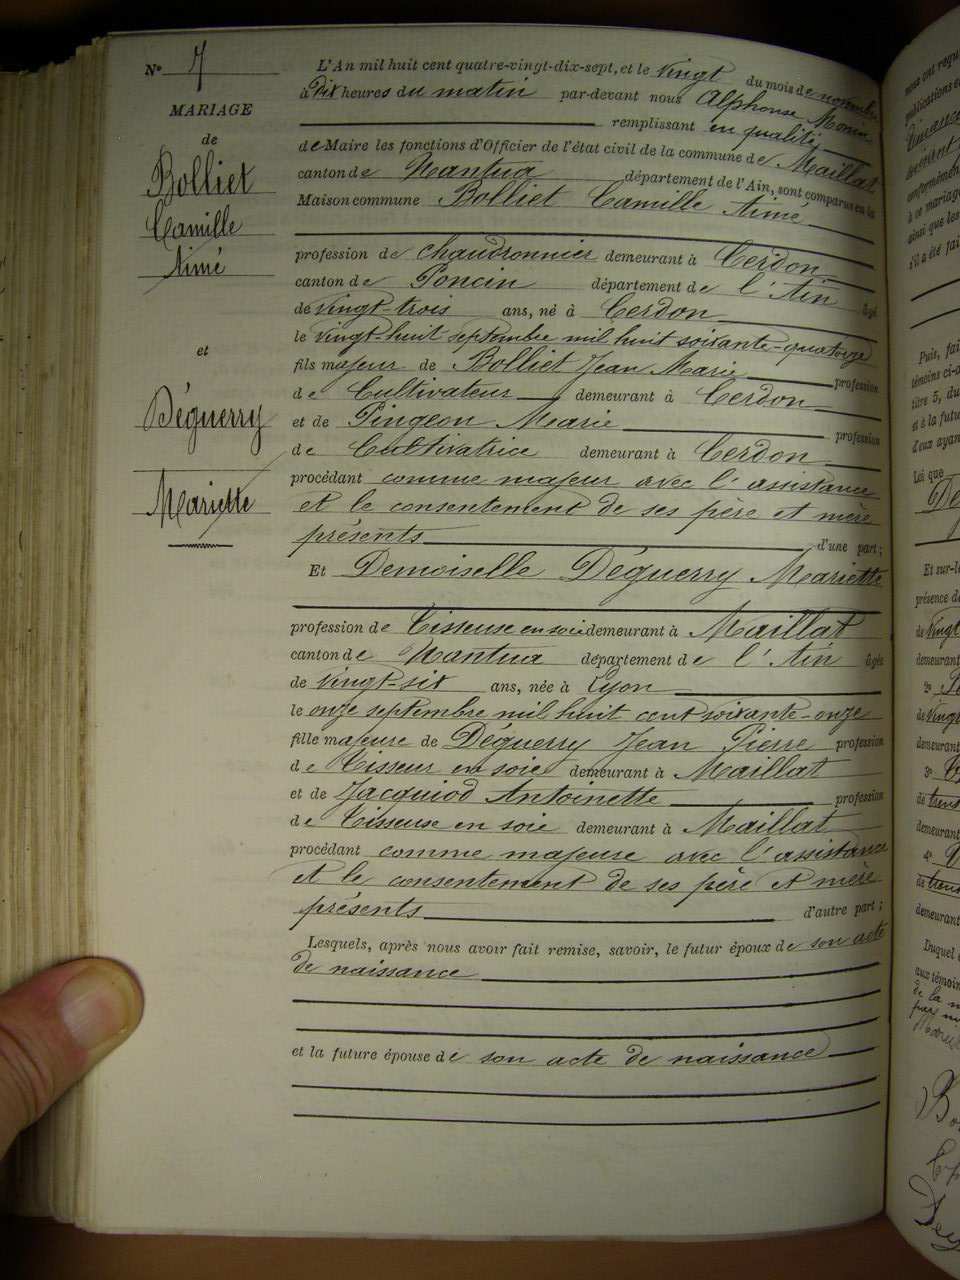 N° 7
MARIAGE
de
Bolliet
Camille
Aimé
et
Déguerry
Mariette
L'An mil huit cent quatre-vingt-dix-sept, et le vingt du mois de novembre
à Dix heures du matin par-devant nous Alphonse Monin
remplissant en qualité
de Maire les fonctions d'Officier de l'état civil de la commune de Maillat
canton de Nantua département de l'Ain, sont comparus en la
Maison commune Bolliet Camille Aimé
profession de chaudronnier demeurant à Cerdon
canton de Poncin département de l'Ain âgé
de vingt-trois ans, né à Cerdon
le vingt-huit septembre mil huit soixante-quatorze
fils majeur de Bolliet Jean Marie profession
de Cultivateur demeurant à Cerdon
et de Pingeon Marie profession
de Cultivatrice demeurant à Cerdon
procédant comme majeur avec l'assistance
et le consentement de ses père et mère
présents d'une part;
Et Demoiselle Déguerry Mariette
profession de Tisseuse en soie demeurant à Maillat
canton de Nantua département de l'Ain âgée
de vingt-six ans, née à Lyon
le onze septembre mil huit cent soixante-onze
fille majeure de Déguerry Jean Pierre profession
de Tisseur en soie demeurant à Maillat
et de Jacquiod Antoinette profession
de Tisseuse en soie demeurant à Maillat
procédant comme majeuse avec l'assistance
et le consentement de ses père et mère
présents d'autre part;
Lesquels, après nous avoir fait remise, savoir, le futur époux de son acte
de naissance
et la future épouse de son acte de naissance